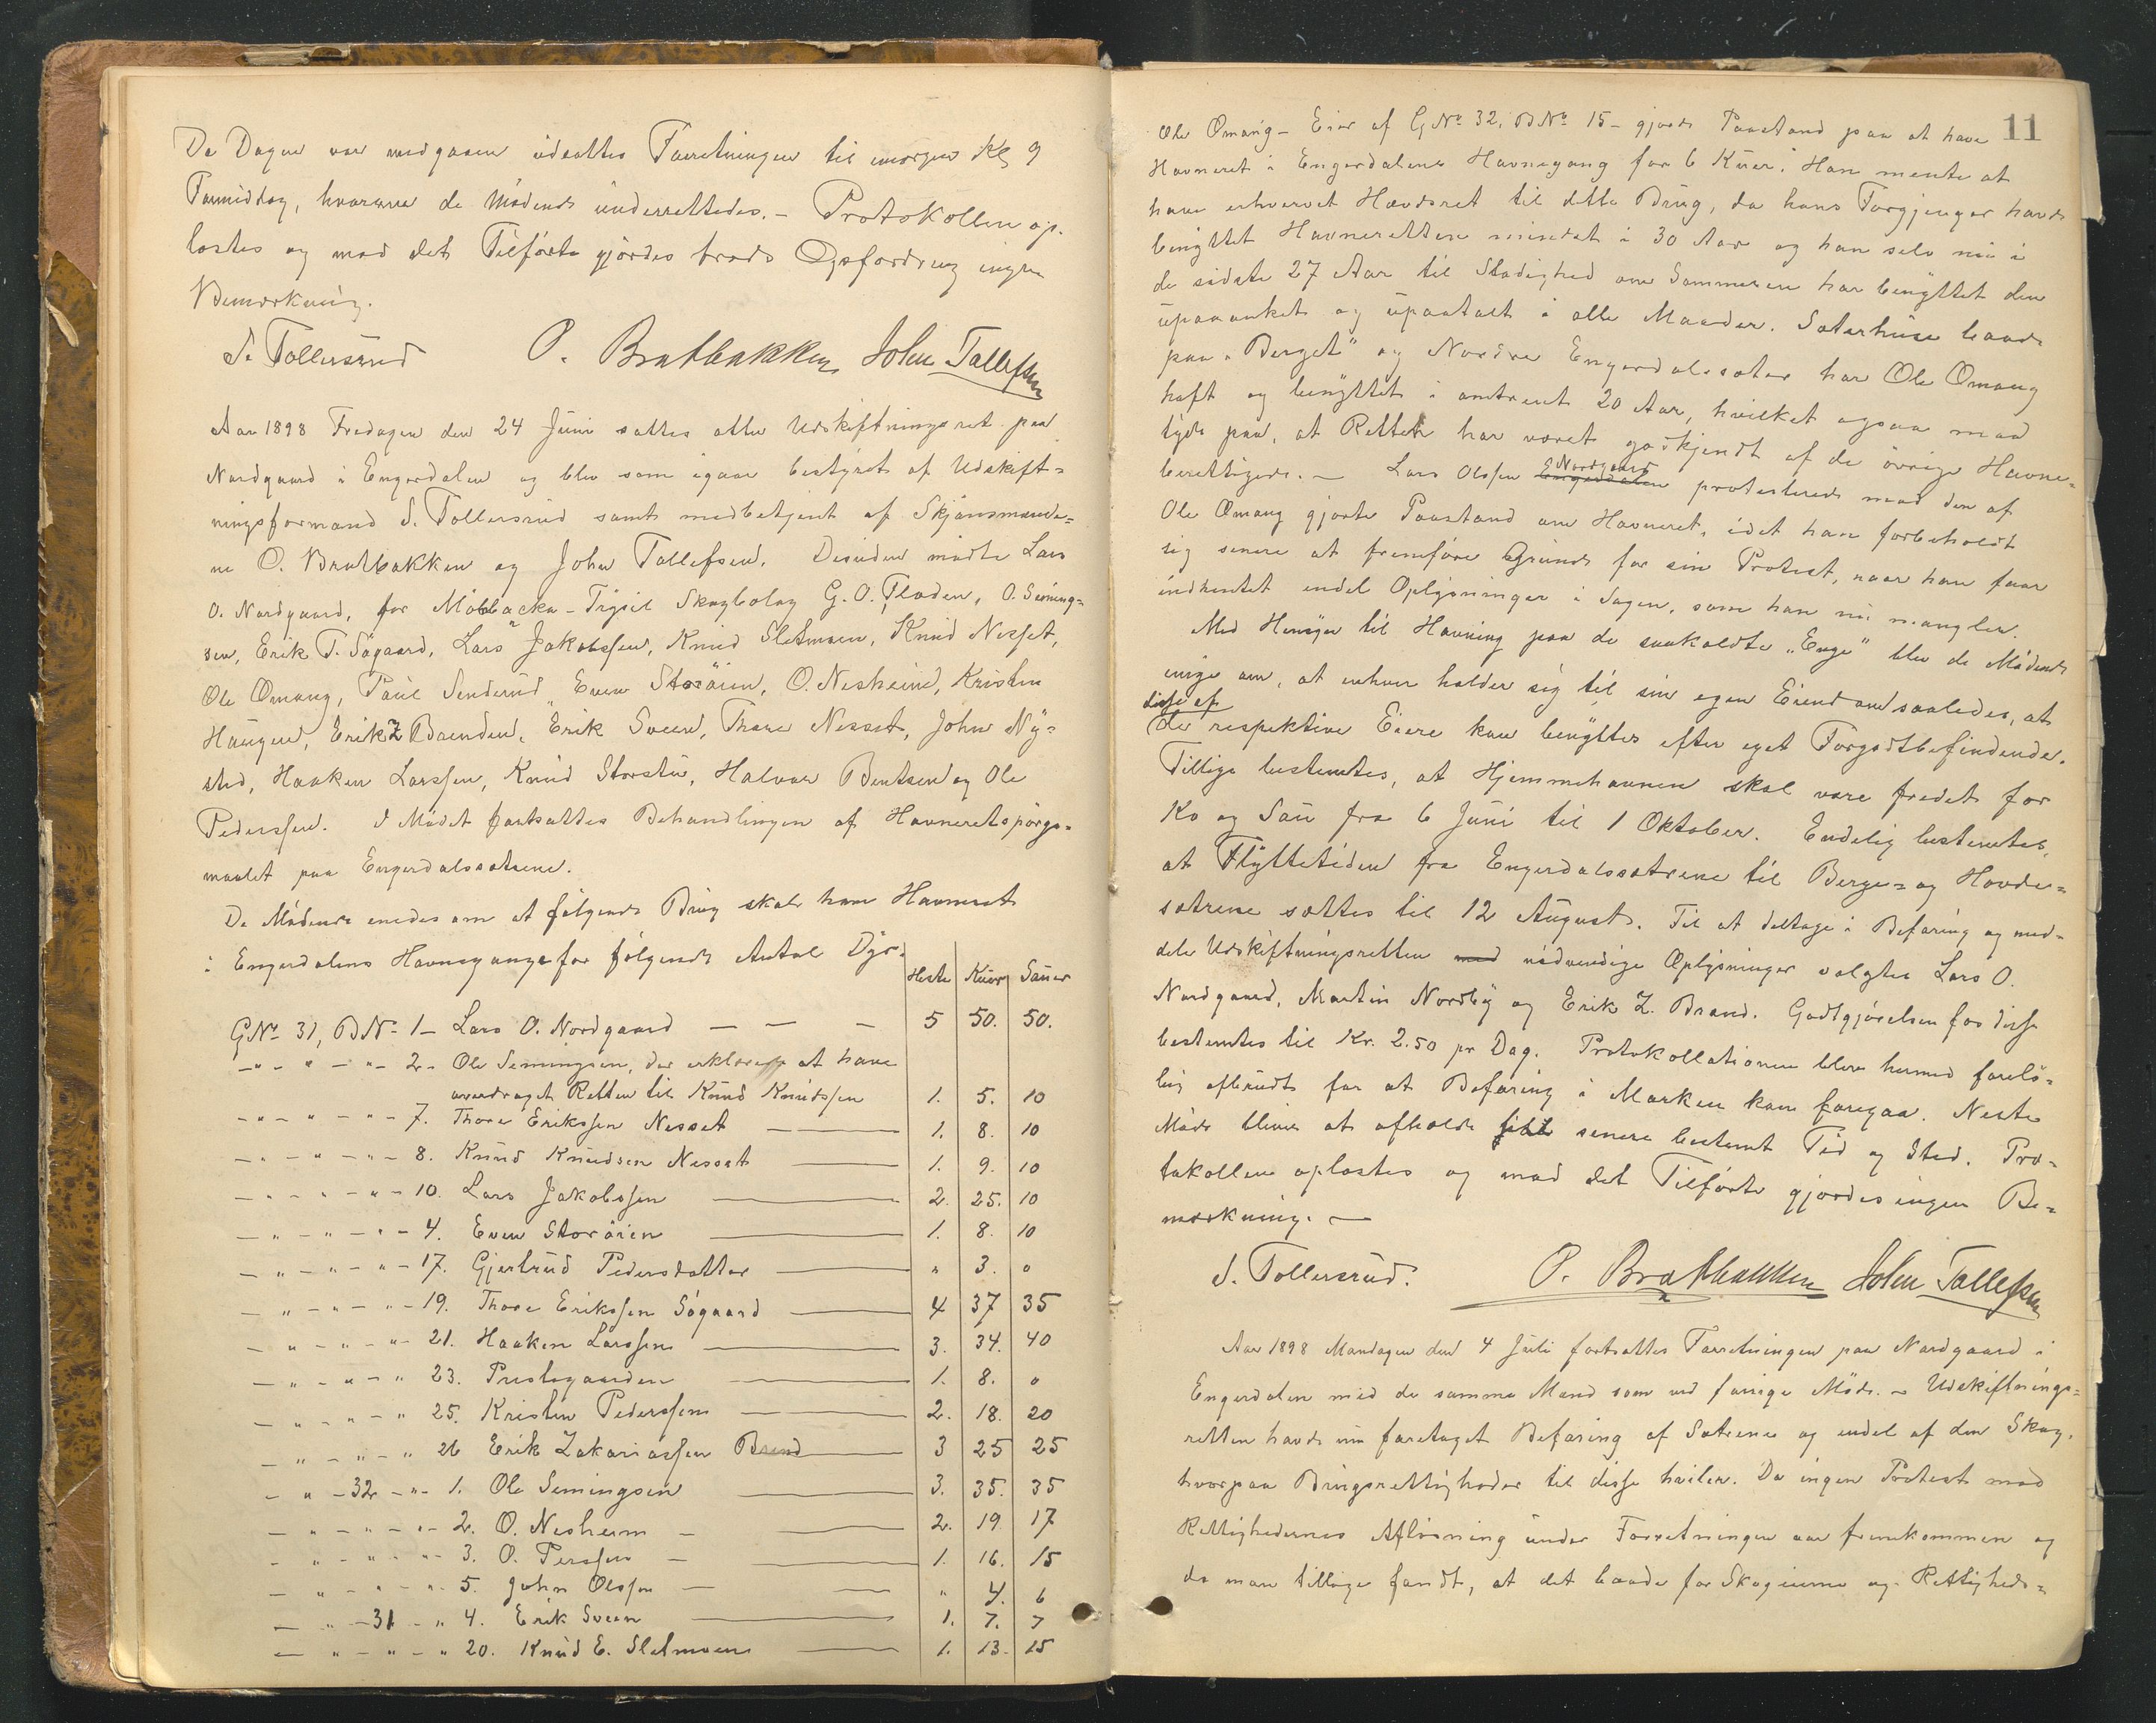 Da Dagen var medgaaen udsattes Forretningen til imorgen Kl 9
Formiddag, hvorom de Mødende underrettedes. – Protokollen op-
læstes og mod det Tilførte gjordes trods Opfordring ingen
Bemærkning.
S. Tollersrud O. Bratbakken John Tollefsen
Aar 1898 Fredagen den 24 Juni sattes atter Udskiftningsret paa
Nordgaard i Engerdalen og blev som igaar bestyret af Udskift=
ningsformand S. Tollersrud samt medbetjent af Skjønsmænde=
ne O. Bratbakken og John Tollefsen. Desuden mødte Lars
O. Nordgaard, for Molbacka-Trysil Skogbolag G. O. Floden, O. Seming=
sen, Erik T. Søgaard, Lars Jakobssen, Knud Sletmoen, Knud Nesset,
Ole Omang, Paul Senderud, Even Storøien, O. Nesheim, Kristen
Haugen, Erik Z Brænden, Erik Sveen, Thore Nesset, John Ny=
sted, Haaken Larssen, Knud Storstu, Halvor Bentsen og Ole
Pederssen. I Mødet fortsattes Behandlingen af Havneretspørgs=
maalet paa Engerdalssætrene.
De Mødende enedes om at følgende Brug skal have Havneret
i Engerdalens Havnegange for følgende Antal Dyr.
Heste Kuer Sauer
GNo 31, BNo 1 – Lars O. Nordgaard — — — 5 50. 50.
– " – " – " – 2 – Ole Semingsen, der erklærede at have
overdraget Retten til Knud Knudssen 1. 5. 10
– " – " – " – 7. Thore Erikssen Nesset — 1. 8. 10
– " – " – " – 8. Knud Knudsen Nesset — 1. 9. 10
– " – " – " – 10. Lars Jakobssen — 2. 25. 10
– " – " – " – 4. Even Storøien — 1. 8. 10
– " – " – " – 17. Gjertrud Pedersdatter — " 3. 0
– " – " – " – 19. Thore Erikssen Søgaard — 4 37 35
– " – " – " – 21. Haaken Larssen — 3. 34. 40
– " – " – " 23. Prestegaarden — 1. 8. 0
– " – " – " 25. Kristen Pederssen — 2. 18. 20
– " – " – " 26 Erik Zakariassen Brænd — 3 25 25
– " – 32 – " – 1. Ole Semingsen — 3. 35. 35
– " – " – " – 2. O. Nesheim – — 2. 19 17
– " – " – " – 3. O. Perssen – — 1. 16. 15
– " – " – " – 5. John Olssen — — " 4. 6
– " – 31 – " 4. Erik Sveen — 1. 7. 7
– " – " – " 20. Knud E. Sletmoen — 1. 13. 15
11
Ole Omang – Eier af GNo 32, BNo 15 – gjorde Paastand paa at have
Havneret i Engerdalens Havnegang for 6 Kuer. Han mente at
have erhvervet Hævdsret til dette Brug, da hans Forgjenger havde
benyttet Havneretten mindst i 30 Aar og han selv nu i
de sidste 27 Aar til Stadighed om Sommeren har benyttet den
upaaanket og upaatalt i alle Maader. Sæterhuse baade
paa "Berget" og Nordre Engerdalssæter har Ole Omang
haft og benyttet i omtrent 20 Aar, hvilket ogsaa maa
tyde paa, at Retten har været godkjendt af de øvrige Havne=
berettigede. – Lars Olssen Engerdalen Nordgaard protesterede mod den af
Ole Omang gjorte Paastand om Havneret, idet han forbeholdt
sig senere at fremføre Grunde for sin Protest, naar han faar
indhentet endel Oplysninger i Sagen, som han nu mangler.
Med Hensyn til Havning paa de saakaldte "Enge" blev de Mødende
enige om, at enhver holder sig til sin egen Eiendom saaledes, at
disse af
de respektive Eiere kan benyttes efter eget Forgodtbefindende.
Tillige bestemtes, at Hjemmehavnen skal være fredet for
Ko og Sau fra 6 Juni til 1 Oktober. Endelig bestemtes,
at Flyttetiden fra Engerdalssætrene til Berge= og Hovde=
sætrene sættes til 12 August. Til at deltage i Befaring og med-
dele Udskiftningsretten med nødvendige Oplysninger valgtes Lars O.
Nordgaard, Martin Nordby og Erik Z. Brænd. Godtgjørelsen for disse
bestemtes til Kr. 2.50 pr Dag. Protokollationen blev hermed forelø=
big afbrudt for at Befaring i Marken kan foregaa. Neste
Møde bliver at afholde til senere bestemt Tid og Sted. Pro=
tokollen oplæstes og mod det Tilførte gjordes ingen Be=
mærkning. —
S. Tollersrud. O. Bratbakken John Tollefsen
Aar 1898 Mandagen den 4 Juli fortsattes Forretningen paa Nordgaard i
Engerdalen med de samme Mænd som ved forrige Møde. – Udskiftnings=
retten havde nu foretaget Befaring af Sætrene og endel af den Skog,
hvorpaa Brugsrettigheder til disse hviler. Da ingen Protest mod
Rettighedernes Afløsning under Forretningen var fremkommen og
da man tillige fandt, at det baade for Skogeierne og Rettigheds=